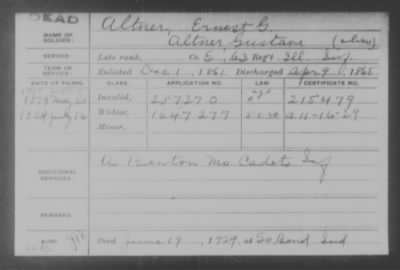 DEAD
NAME OF SOLDIER: Altner, Ernest G.
Altner Gustave (alias)
SERVICE: Late rank, Co. E, 63 Reg't Ill Inf.
TERM OF SERVICE: Enlisted Dec 1, 1861 Discharged Apr 9, 1865
DATE OF FILING. CLASS. APPLICATION NO. LAW. CERTIFICATE NO.
Invalid, 287270 215479
1929 July 16 Widow, 1647277 5-1-20 A-11-16-29
Minor,
ADDITIONAL SERVICES: U Benton Mo. Cadets Inf
REMARKS:
Died June 19, 1929, at So. Bend Ind